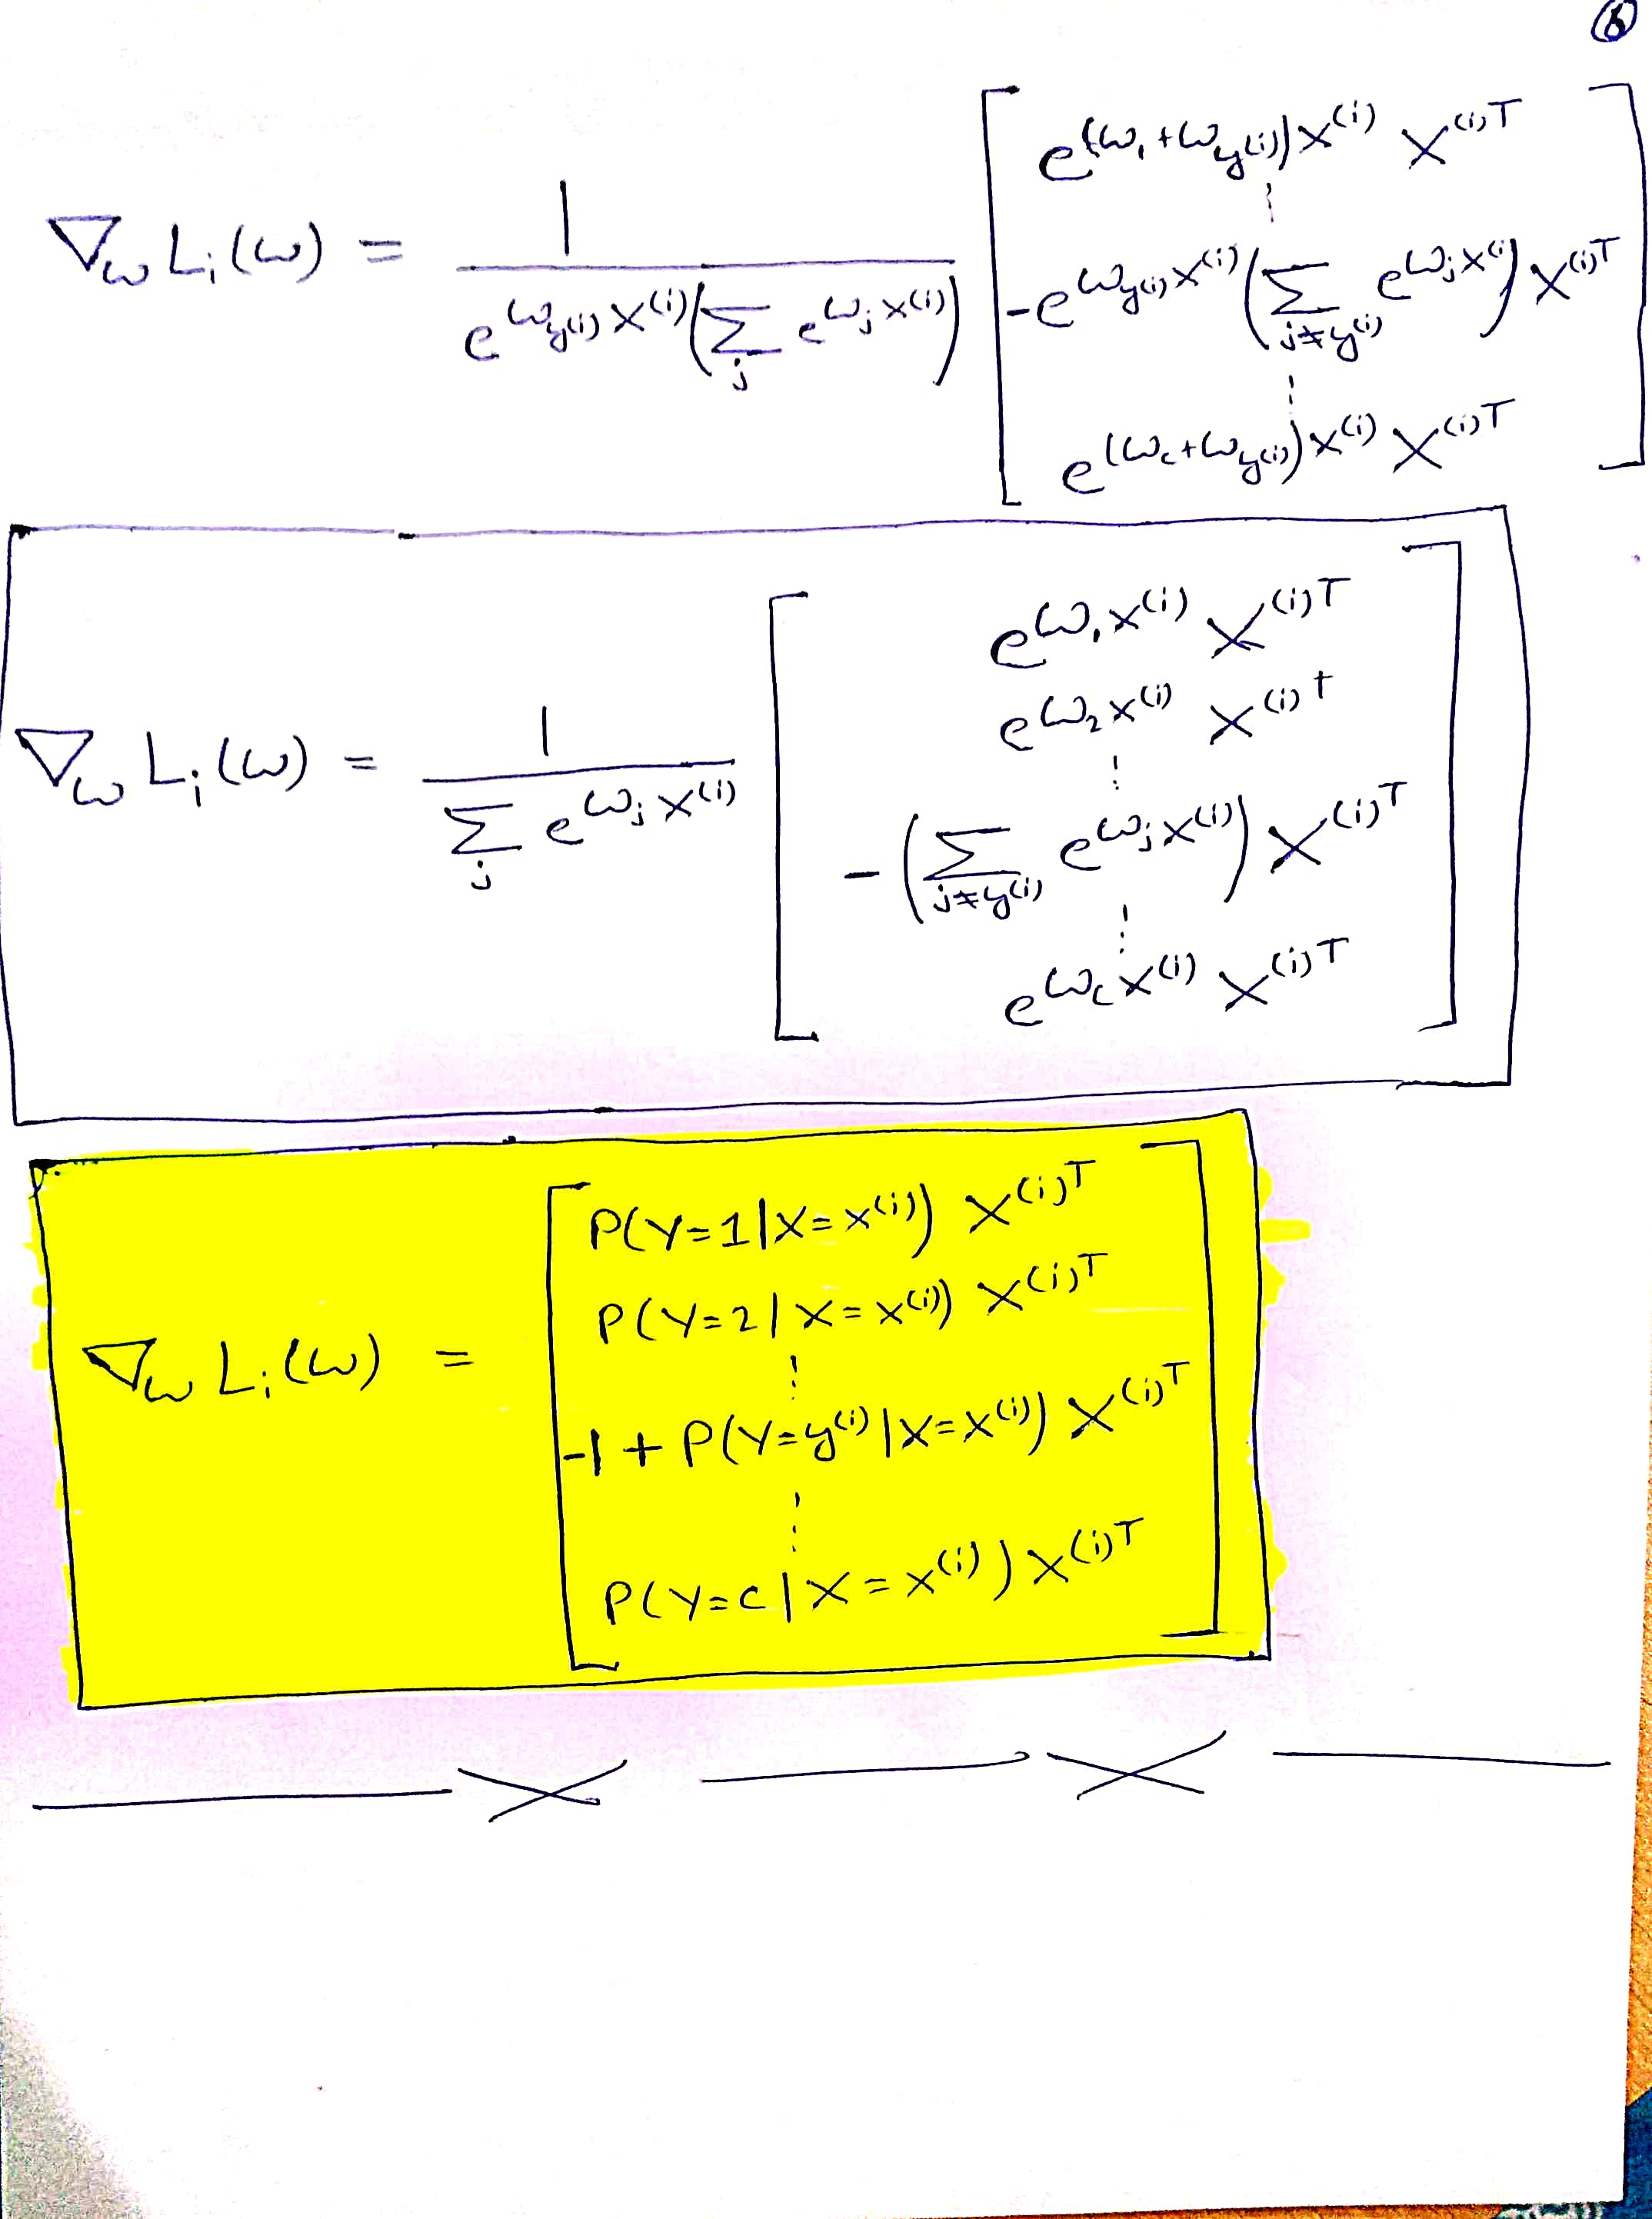 ⑥
∇_ω L_i(ω) = 1 / (e^{ω_{y^{(i)}} x^{(i)}} (∑_j e^{ω_j x^{(i)}})) [ e^{(ω_1 + ω_{y^{(i)}}) x^{(i)}} x^{(i)T}
⋮
-e^{ω_{y^{(i)}} x^{(i)}} (∑_{j≠y^{(i)}} e^{ω_j x^{(i)}}) x^{(i)T}
⋮
e^{(ω_c + ω_{y^{(i)}}) x^{(i)}} x^{(i)T} ]
∇_ω L_i(ω) = 1 / (∑_j e^{ω_j x^{(i)}}) [ e^{ω_1 x^{(i)}} x^{(i)T}
e^{ω_2 x^{(i)}} x^{(i)T}
⋮
- (∑_{j≠y^{(i)}} e^{ω_j x^{(i)}}) x^{(i)T}
⋮
e^{ω_c x^{(i)}} x^{(i)T} ]
∇_ω L_i(ω) = [ P(Y=1|X=x^{(i)}) x^{(i)T}
P(Y=2|X=x^{(i)}) x^{(i)T}
⋮
-1 + P(Y=y^{(i)}|X=x^{(i)}) x^{(i)T}
⋮
P(Y=c|X=x^{(i)}) x^{(i)T} ]